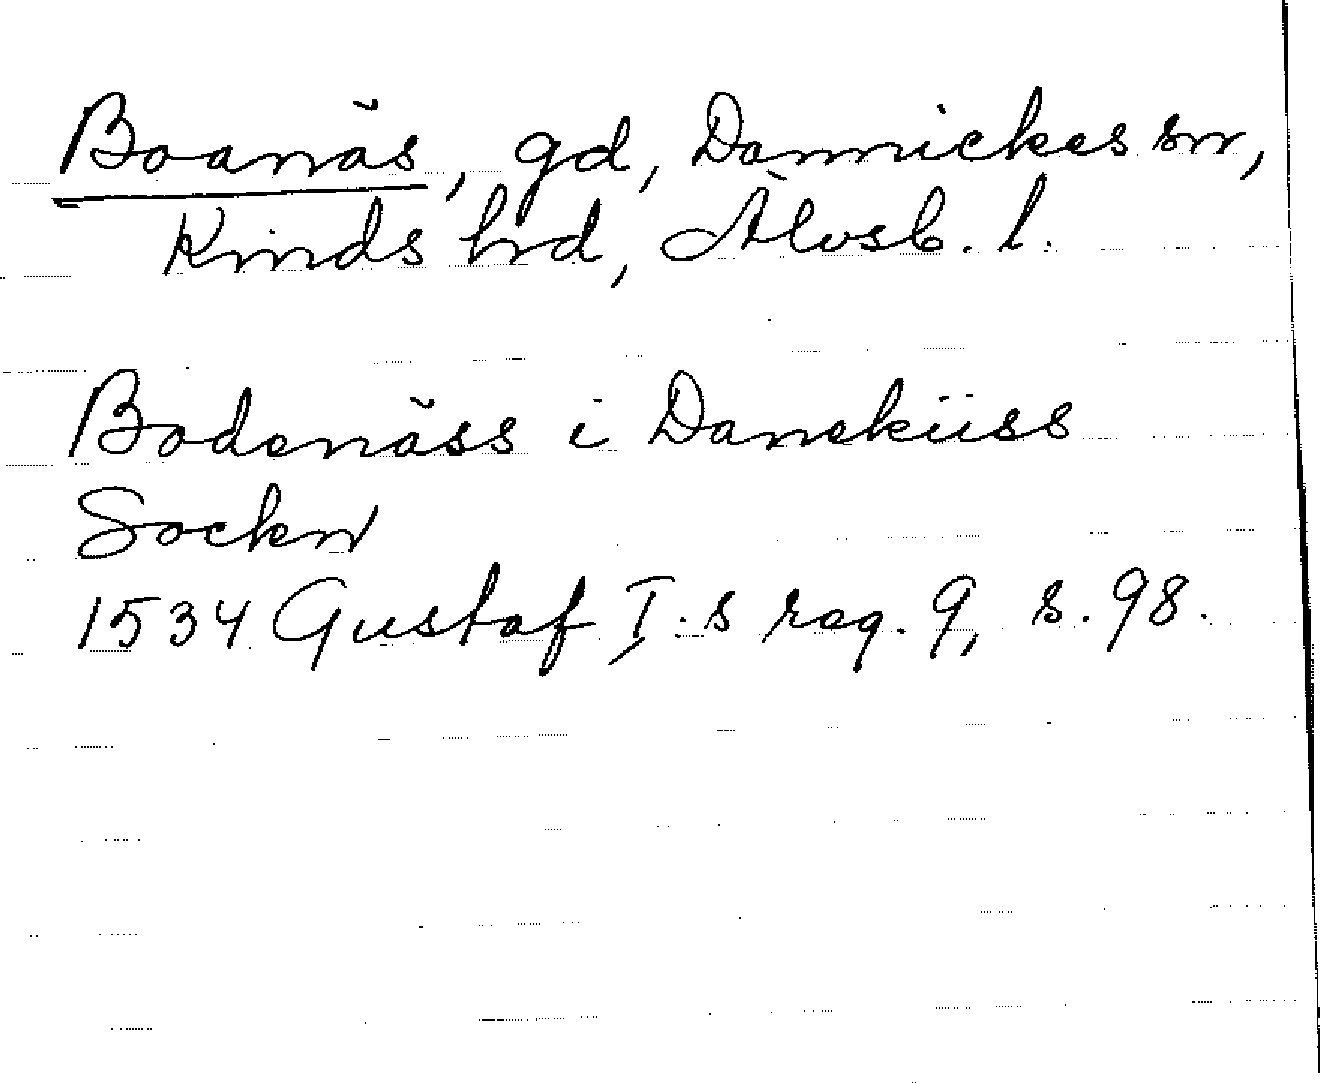 Boanäs, gd, Dannickes sn,
Kinds hd, Älvsb. l.
Bodenäss i Daneküss
Sockn
1534 Gustaf I:s reg. 9, s. 98.